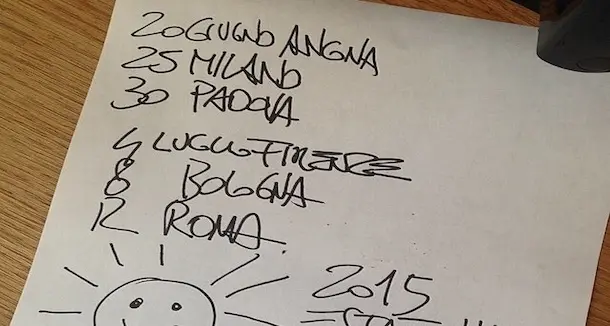 20 GIUGNO ANCONA
25 MILANO
30 PADOVA
4 LUGLIO FIRENZE
8 BOLOGNA
12 ROMA.
2015